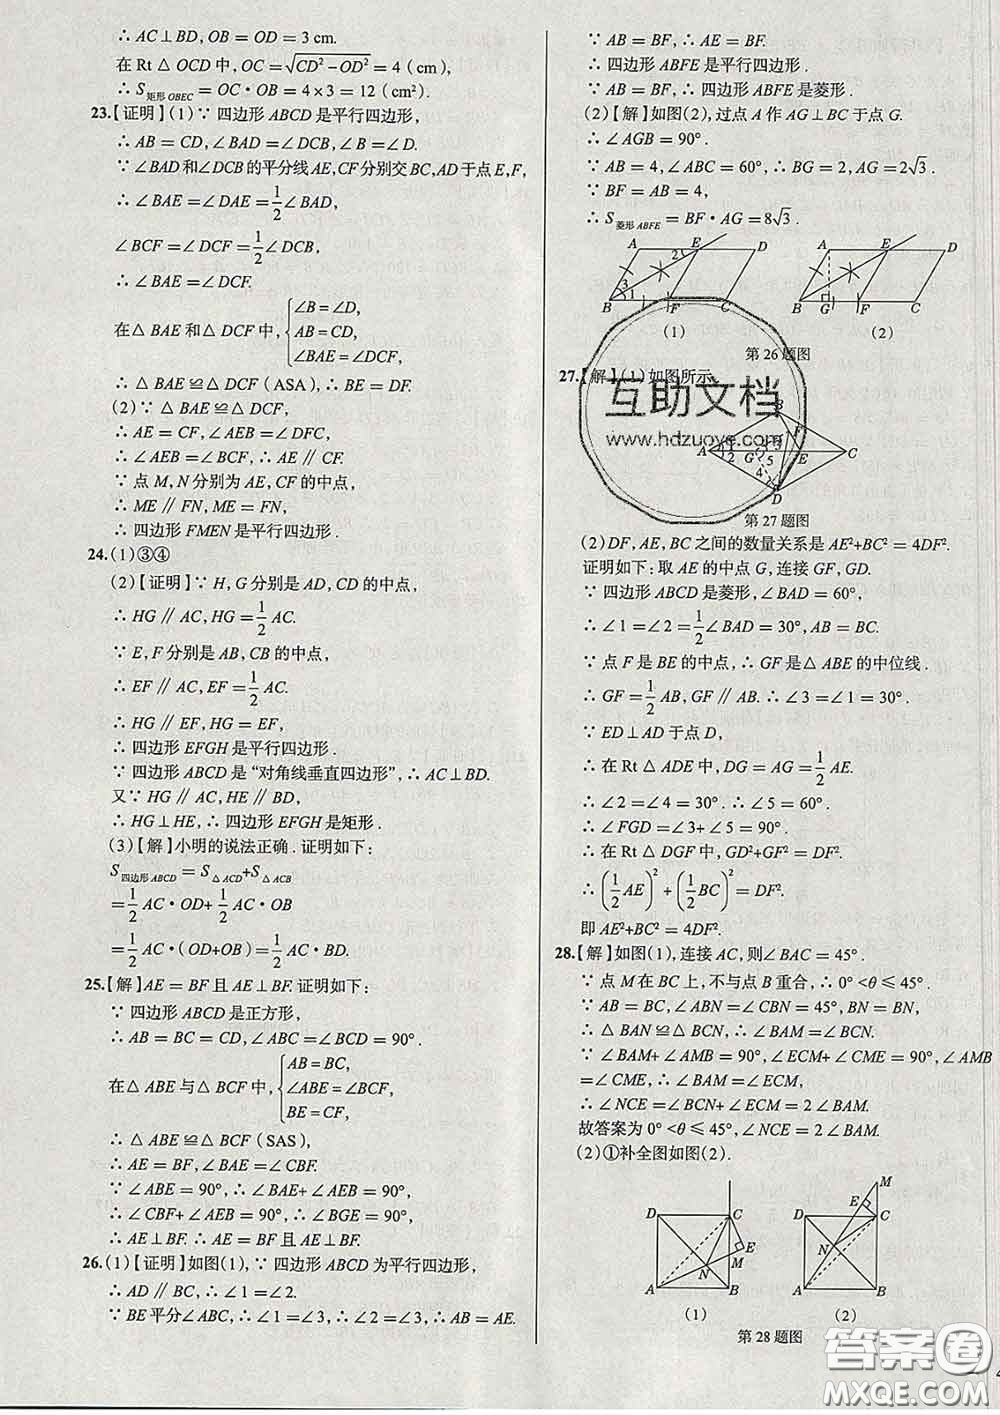 ∴ AC⊥BD,OB = OD = 3 cm.
在 Rt△OCD 中,OC = √(CD²-OD²) = 4 (cm),
∴ S矩形OBEC = OC·OB = 4×3 = 12 (cm²).
23.【证明】(1)∵ 四边形 ABCD 是平行四边形,
∴ AB = CD,∠BAD = ∠DCB,∠B = ∠D.
∵ ∠BAD 和∠DCB 的平分线 AE,CF 分别交 BC,AD 于点 E,F,
∴ ∠BAE = ∠DAE = 1/2 ∠BAD,
∠BCF = ∠DCF = 1/2 ∠DCB,
∴ ∠BAE = ∠DCF.
在△BAE 和△DCF 中,
∠B = ∠D,
AB = CD,
∠BAE = ∠DCF,
∴ △BAE≌△DCF (ASA),∴ BE = DF.
(2)∵ △BAE≌△DCF,
∴ AE = CF,∠AEB = ∠DFC,
∴ ∠AEB = ∠BCF,∴ AE∥CF.
∵ 点 M,N 分别为 AE,CF 的中点,
∴ ME∥FN,ME = FN,
∴ 四边形 FMEN 是平行四边形.
24.(1)③④
(2)【证明】∵ H,G 分别是 AD,CD 的中点,
∴ HG∥AC,HG = 1/2 AC.
∵ E,F 分别是 AB,CB 的中点,
∴ EF∥AC,EF = 1/2 AC.
∴ HG∥EF,HG = EF,
∴ 四边形 EFGH 是平行四边形.
∵ 四边形 ABCD 是“对角线垂直四边形”,∴ AC⊥BD.
又∵ HG∥AC,HE∥BD,
∴ HG⊥HE,∴ 四边形 EFGH 是矩形.
(3)【解】小明的说法正确.证明如下:
S四边形ABCD = S△ACD+S△ACB
= 1/2 AC·OD+ 1/2 AC·OB
= 1/2 AC·(OD+OB) = 1/2 AC·BD.
25.【解】AE = BF 且 AE⊥BF.证明如下:
∵ 四边形 ABCD 是正方形,
∴ AB = BC = CD,∠ABC = ∠BCD = 90°.
在△ABE 与△BCF 中,
AB = BC,
∠ABE = ∠BCF,
BE = CF,
∴ △ABE≌△BCF (SAS),
∴ AE = BF,∠BAE = ∠CBF.
∵ ∠ABE = 90°,∴ ∠BAE+∠AEB = 90°,
∴ ∠CBF+∠AEB = 90°,∴ ∠BGE = 90°,
∴ AE⊥BF.∴ AE = BF 且 AE⊥BF.
26.(1)【证明】如图(1),∵ 四边形 ABCD 为平行四边形,
∴ AD∥BC,∴ ∠1 = ∠2.
∵ BE 平分∠ABC,∴ ∠1 = ∠3,∴ ∠2 = ∠3,∴ AB = AE.
∵ AB = BF,∴ AE = BF.
∴ 四边形 ABFE 是平行四边形.
∵ AB = BF,∴ 四边形 ABFE 是菱形.
(2)【解】如图(2),过点 A 作 AG⊥BC 于点 G.
∴ ∠AGB = 90°.
∵ AB = 4,∠ABC = 60°,∴ BG = 2,AG = 2√3.
∵ BF = AB = 4,
∴ S菱形ABFE = BF·AG = 8√3.
A E D 2 3 1 B F C
(1)
A E D B G F C
(2)
第 26 题图
27.【解】(1)如图所示.
互助文档
www.hdzuoye.com
A B C D E F G 1 2 3 4 5
第 27 题图
(2)DF,AE,BC 之间的数量关系是 AE²+BC² = 4DF².
证明如下:取 AE 的中点 G,连接 GF,GD.
∵ 四边形 ABCD 是菱形,∠BAD = 60°,
∴ ∠1 = ∠2 = 1/2 ∠BAD = 30°,AB = BC.
∵ 点 F 是 BE 的中点,∴ GF 是△ABE 的中位线.
∴ GF = 1/2 AB,GF∥AB.∴ ∠3 = ∠1 = 30°.
∵ ED⊥AD 于点 D,
∴ 在 Rt△ADE 中,DG = AG = 1/2 AE.
∴ ∠2 = ∠4 = 30°.∴ ∠5 = 60°.
∴ ∠FGD = ∠3+∠5 = 90°.
∴ 在 Rt△DGF 中,GD²+GF² = DF².
∴ (1/2 AE)²+(1/2 BC)² = DF².
即 AE²+BC² = 4DF².
28.【解】如图(1),连接 AC,则∠BAC = 45°.
∵ 点 M 在 BC 上,不与点 B 重合,∴ 0°<θ≤45°.
∵ AB = BC,∠ABN = ∠CBN = 45°,BN = BN,
∴ △BAN≌△BCN,∴ ∠BAM = ∠BCN.
∵ ∠BAM+∠AMB = 90°,∠ECM+∠CME = 90°,∠AMB
= ∠CME,∴ ∠BAM = ∠ECM,
∴ ∠NCE = ∠BCN+∠ECM = 2∠BAM.
故答案为 0°<θ≤45°,∠NCE = 2∠BAM.
(2)①补全图如图(2).
D C E M N A B
(1)
M E D C N A B
(2)
第 28 题图
答案圈
MXQE.COM
4